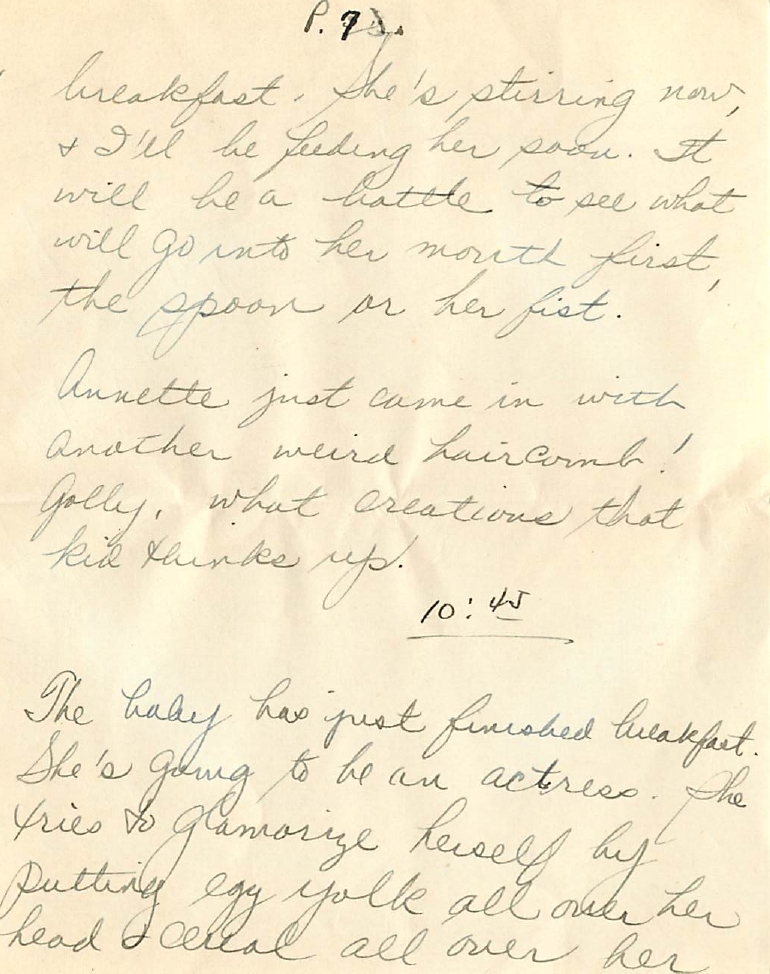 P. 7
breakfast. She's stirring now,
& I'll be feeding her soon. It
will be a battle to see what
will go into her mouth first,
the spoon or her fist.
Annette just came in with
another weird haircomb!
Golly, what creations that
kid thinks up!
10:45
The baby has just finished breakfast.
She's going to be an actress. She
tries to glamorize herself by
putting egg yolk all over her
head & cereal all over her